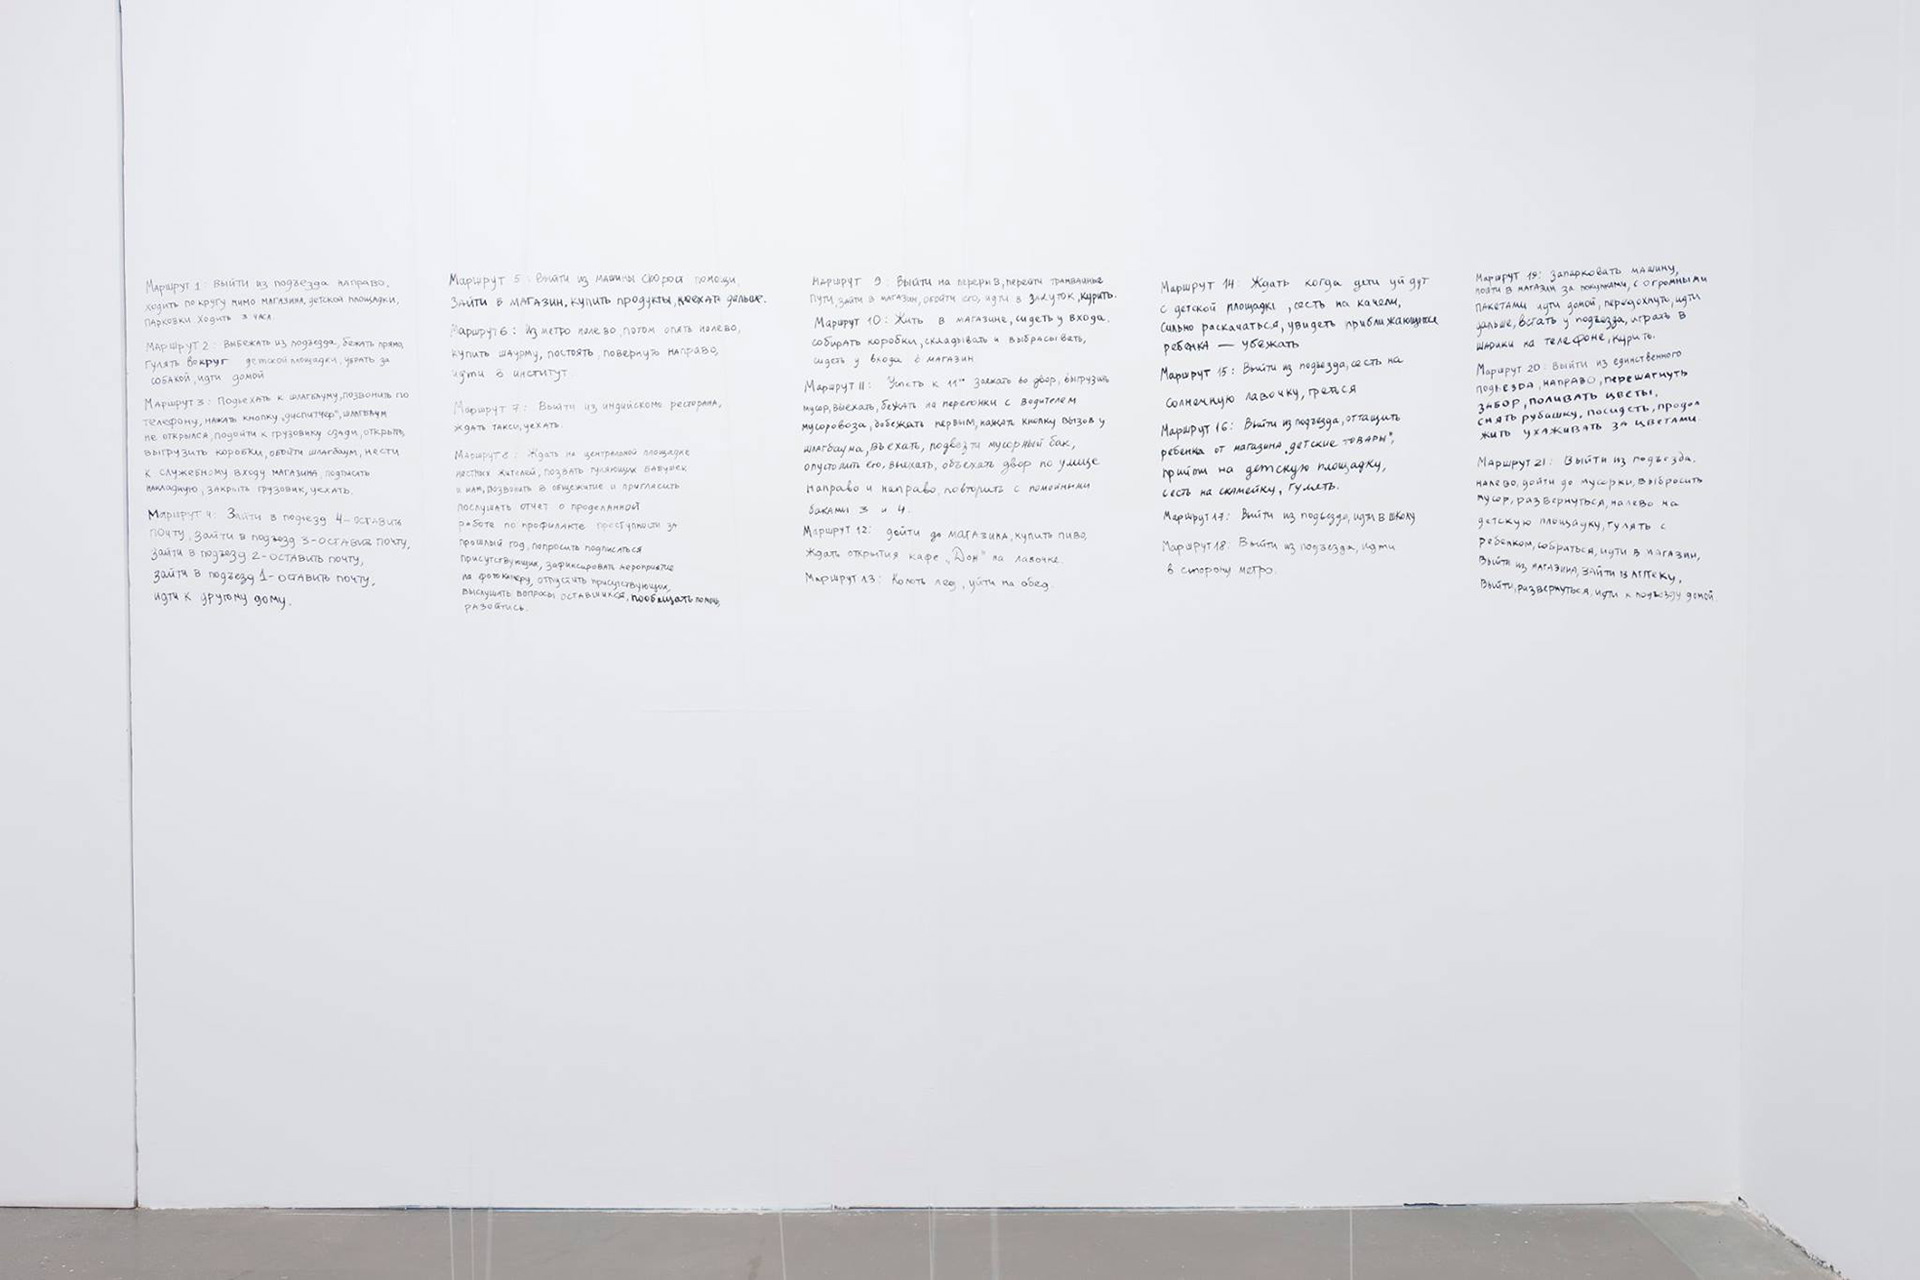 Маршрут 1: Выйти из подъезда направо,
ходить по кругу мимо магазина, детской площадки,
парковки. Ходить 3 часа.
Маршрут 2: Выбежать из подъезда, бежать прямо,
гулять вокруг детской площадки, убрать за
собакой, идти домой
Маршрут 3: Подъехать к шлагбауму, позвонить по
телефону, нажать кнопку „диспетчер", шлагбаум
не открылся, подойти к грузовику сзади, открыть,
выгрузить коробки, обойти шлагбаум, нести
к служебному входу магазина, подписать
накладную, закрыть грузовик, уехать.
Маршрут 4: Зайти в подъезд 4-оставить
почту, зайти в подъезд 3-оставить почту,
зайти в подъезд 2-оставить почту,
зайти в подъезд 1-оставить почту,
идти к другому дому.
Маршрут 5: Выйти из машины скорой помощи,
зайти в магазин, купить продукты, поехать дальше.
Маршрут 6: Из метро налево, потом опять налево,
купить шаурму, постоять, повернуть направо,
идти в институт
Маршрут 7: Выйти из индийского ресторана,
ждать такси, уехать.
Маршрут 8: Ждать на центральной площадке
местных жителей, позвать гуляющих бабушек
к нам, позвонить в общежитие и пригласить
послушать отчет о проделанной
работе по профилакте преступности за
прошлый год, попросить подписаться
присутствующих, зафиксировать мероприятие
на фотокамеру, отпустить присутствующих,
выслушать вопросы оставшихся, пообещать помощь,
разойтись.
Маршрут 9: Выйти на перерыв, перейти трамвайные
пути, зайти в магазин, обойти его, идти в закуток, курить.
Маршрут 10: Жить в магазине, сидеть у входа,
собирать коробки, складывать и выбрасывать,
сидеть у входа в магазин
Маршрут 11: Успеть к 11⁰⁰ заехать во двор, выгрузить
мусор, выехать, бежать на перегонки с водителем
мусоровоза, добежать первым, нажать кнопку вызов у
шлагбаума, въехать, подвезти мусорный бак,
опустошить его, выехать, объехать двор по улице
направо и направо, повторить с помойными
баками 3 и 4.
Маршрут 12: дойти до магазина, купить пиво,
ждать открытия кафе „Дон" на лавочке.
Маршрут 13: Колоть лед, уйти на обед.
Маршрут 14: Ждать когда дети уйдут
с детской площадки, сесть на качели,
сильно раскачаться, увидеть приближающегося
ребенка — убежать
Маршрут 15: Выйти из подъезда, сесть на
солнечную лавочку, греться
Маршрут 16: Выйти из подъезда, оттащить
ребенка от магазина „детские товары",
прийти на детскую площадку,
сесть на скамейку, гуметь.
Маршрут 17: Выйти из подъезда, идти в школу
Маршрут 18: Выйти из подъезда, идти
в сторону метро.
Маршрут 19: Запарковать машину,
пойти в магазин за покупками, с огромными
пакетами идти домой, передохнуть, идти
дальше, встать у подъезда, играть в
шарики на телефоне, курить.
Маршрут 20: Выйти из единственного
подъезда, направо, перешагнуть
забор, поливать цветы,
снять рубашку, посидеть, продол
жить ухаживать за цветами.
Маршрут 21: Выйти из подъезда,
налево, дойти до мусорки, выбросить
мусор, развернуться, налево на
детскую площадку, гулять с
ребенком, собраться, идти в магазин,
выйти из магазина, зайти в аптеку,
выйти, развернуться, идти к подъезду домой.